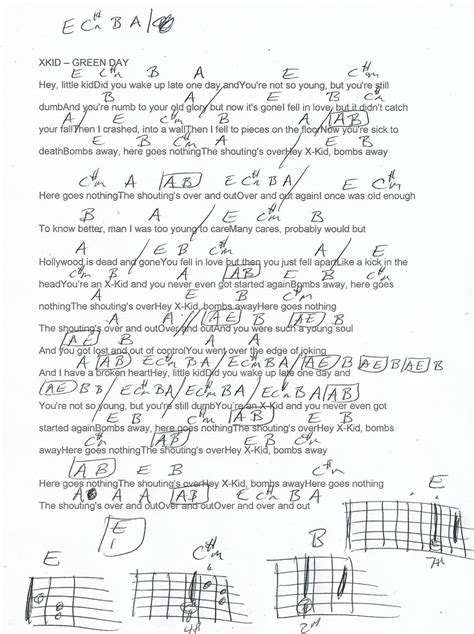 E C#m B A /
XKID – GREEN DAY
E C#m B A E C#m
Hey, little kidDid you wake up late one day andYou're not so young, but you're still
B A / E B C#m
dumbAnd you're numb to your old glory but now it's goneI fell in love, but it didn't catch
A / E C#m B A / AB
your fallThen I crashed, into a wallThen I fell to pieces on the floorNow you're sick to
E B C#m A E
deathBombs away, here goes nothingThe shouting's overHey X-Kid, bombs away
C#m A AB E C#m B A / E C#m
Here goes nothingThe shouting's over and outOver and out againI once was old enough
B A / E C#m B
To know better, man I was too young to careMany cares, probably would but
A / E B C#m A / E
Hollywood is dead and goneYou fell in love but then you just fell apartLike a kick in the
C#m B A AB E B
headYou're an X-Kid and you never even got started againBombs away, here goes
C#m A E B C#m
nothingThe shouting's overHey X-Kid, bombs awayHere goes nothing
A / AE B AE B
The shouting's over and outOver and outAnd you were such a young soul
AE B A A
And you got lost and out of controlYou went over the edge of joking
A AB E C#m B A / E C#m B A / AE B AE B AE B
And I have a broken heartHey, little kidDid you wake up late one day and
AE B B / E C#m B A / E C#m B A / E C#m B A AB
You're not so young, but you're still dumbYou're an X-Kid and you never even got
E B C#m A AB E B
started againBombs away, here goes nothingThe shouting's overHey X-Kid, bombs
C#m A AB E B C#m A
awayHere goes nothingThe shouting's overHey X-Kid, bombs away
AB E B C#m
Here goes nothingThe shouting's overHey X-Kid, bombs awayHere goes nothing
A A A AB E C#m B A
The shouting's over and outOver and outOver and over and out
E
E
1
E C#m B
7th
4th 2nd